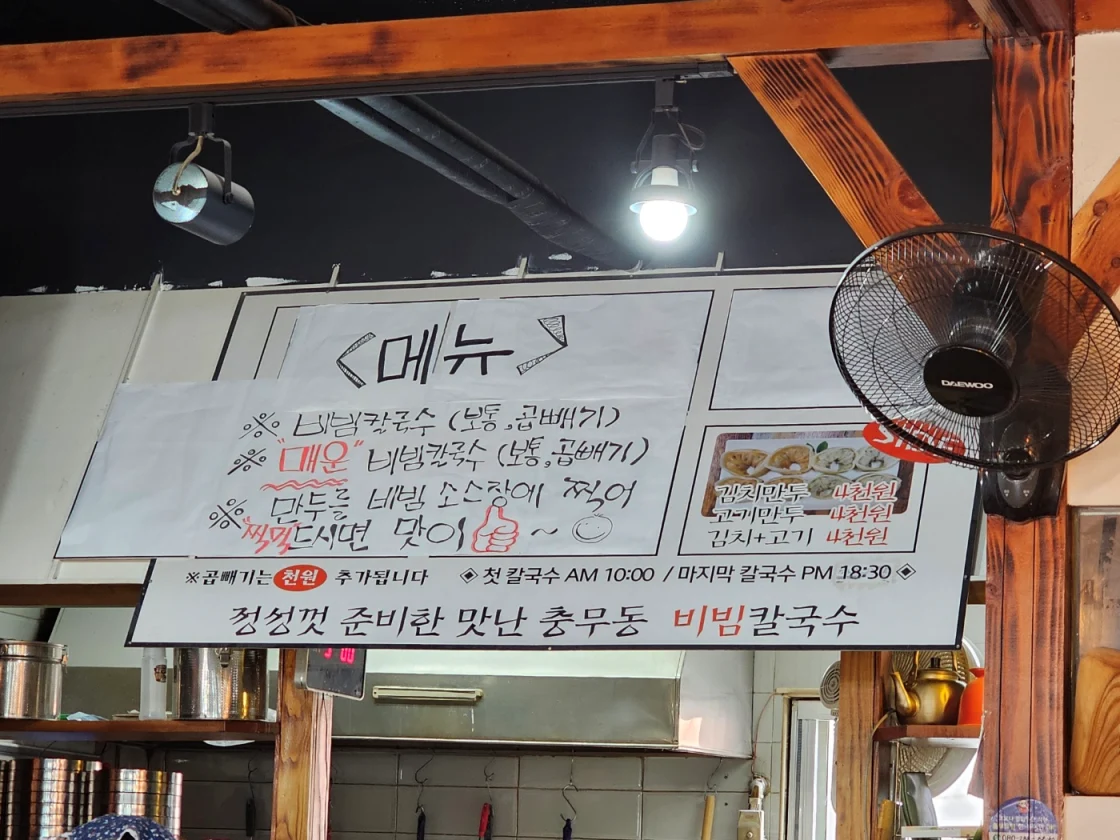 <메뉴>
※ 비빔칼국수 (보통,곱빼기)
※ "매운" 비빔칼국수 (보통,곱빼기)
※ 만두를 비빔 소스장에 찍어
"찍먹"드시면 맛이 ~
김치만두 4천원
고기만두 4천원
김치+고기 4천원
※곱빼기는 천원 추가됩니다 ◈ 첫 칼국수 AM 10:00 / 마지막 칼국수 PM 18:30 ◈
정성껏 준비한 맛난 충무동 비빔칼국수
DAEWOO